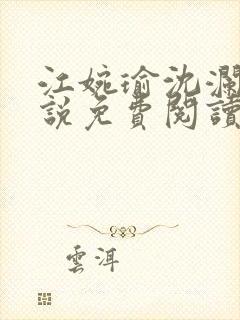 江婉瑜沈瀾
說免費閱讀
雲洱